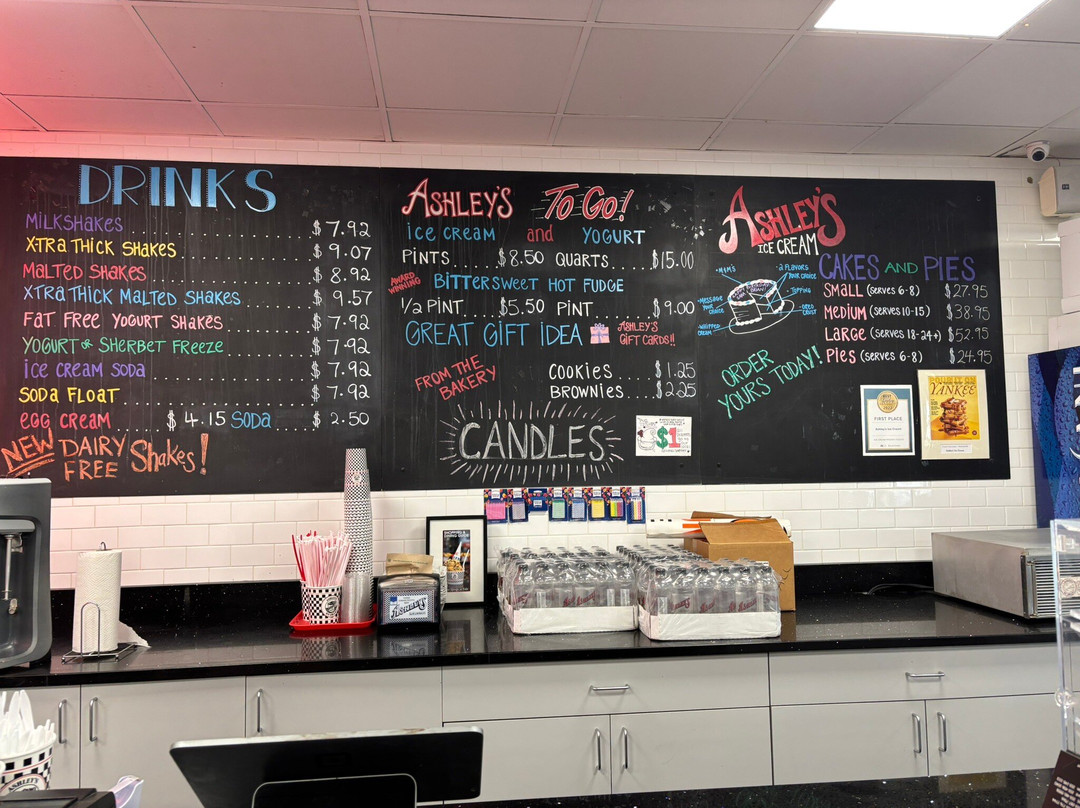 DRINKS
MILKSHAKES $ 7.92
X-TRA THICK SHAKES $ 9.07
MALTED SHAKES $ 8.92
XTRA THICK MALTED SHAKES $ 9.57
FAT FREE YOGURT SHAKES $ 7.92
YOGURT or SHERBET FREEZE $ 7.92
ICE CREAM SODA $ 7.92
SODA FLOAT $ 7.92
EGG CREAM $ 4.15 SODA $ 2.50
NEW DAIRY FREE Shakes!
ASHLEY'S To Go!
ICE CREAM and YOGURT
PINTS $8.50 QUARTS $15.00
AWARD WINNING BITTERSWEET HOT FUDGE
1/2 PINT $5.50 PINT $9.00
GREAT GIFT IDEA ASHLEY'S GIFT CARDS!!
FROM THE BAKERY
COOKIES $1.25
BROWNIES $2.25
CANDLES
$1
ASHLEY'S
ICE CREAM
CAKES AND PIES
SMALL (SERVES 6-8) $27.95
MEDIUM (SERVES 10-15) $38.95
LARGE (SERVES 18-24+) $52.95
PIES (SERVES 6-8) $24.95
•M&M'S
•2 FLAVORS YOUR CHOICE
•TOPPING
•MESSAGE YOUR CHOICE
•OREO CRUST
•WHIPPED CREAM
ORDER YOURS TODAY!
FIRST PLACE
YANKEE
ASHLEY'S
ASHLEY'S